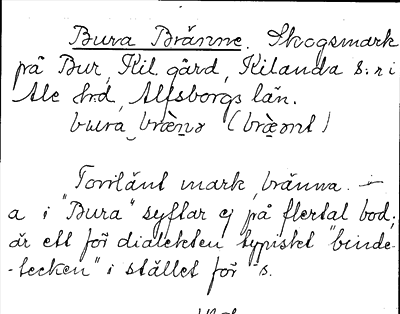 Bura Bränne. Skogsmark
på Bur, Kil gård, Kilanda s:n i
Ale hrd, Älfsborgs län.
bura bræ̀nə (bræ̀ent)
Torrlänt mark, bränna. –
a i "Bura" syftar ej på flertal bod;
är ett för dialekten typiskt "binde-
-tecken" i stället för -s.